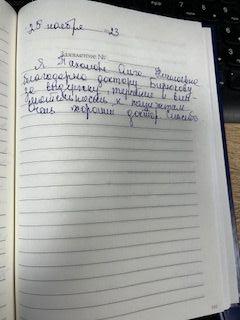 25 ноября 23
Заявление №
Я Пахомова Ольга
благодарю доктору Бирюкову
за выдержку, терпение и вни-
мательность к пациентам
Очень хороший доктор Спасибо